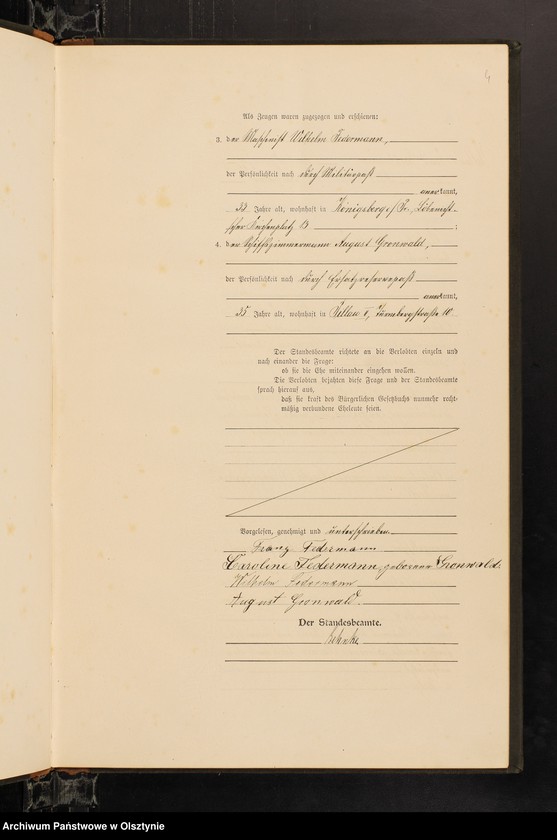 4
Als Zeugen waren zugezogen und erschienen:
3. der Maschinist Wilhelm Federmann,
der Persönlichkeit nach durch Militärpaß
anerkannt,
33 Jahre alt, wohnhaft in Königsberg i/Pr.
13 ;
4. der Schiffszimmermann August Gronwald,
der Persönlichkeit nach durch Ersatzreservepaß
anerkannt,
35 Jahre alt, wohnhaft in Pillau II, 10
Der Standesbeamte richtete an die Verlobten einzeln und
nach einander die Frage:
ob sie die Ehe miteinander eingehen wollen.
Die Verlobten bejahten diese Frage und der Standesbeamte
sprach hierauf aus,
daß sie kraft des Bürgerlichen Gesetzbuchs nunmehr recht-
mäßig verbundene Eheleute seien.
Vorgelesen, genehmigt und unterschrieben
Franz Federmann
Karoline Federmann, geborene Gronwald.
Wilhelm Federmann
August Gronwald
Der Standesbeamte.
Archiwum Państwowe w Olsztynie